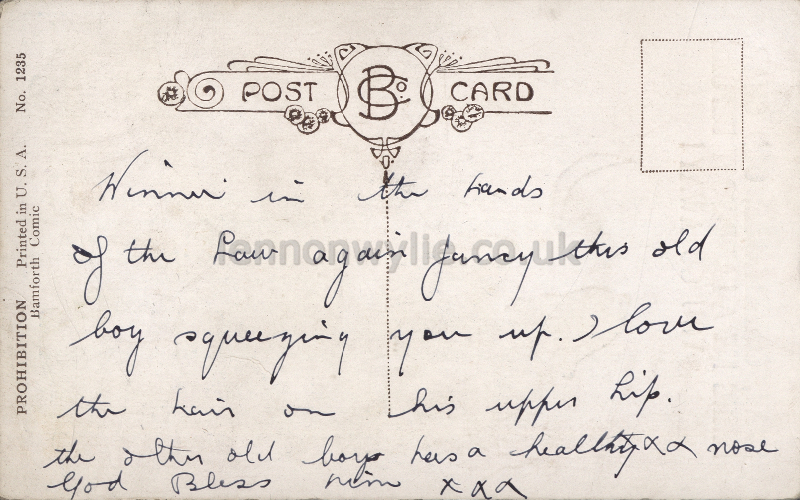 POST CARD
B Co.
PROHIBITION Printed in U. S. A. No. 1235
Bamforth Comic
lennonwylie.co.uk
Winnie in the hands
of the Law again fancy this old
boy squeezing you up. I love
the hair on his upper lip.
the other old boy has a healthy xx nose
God Bless him xxx